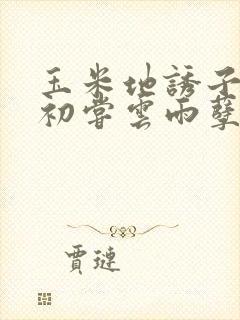 玉米地誘子
初嘗雲雨孽
賈璉